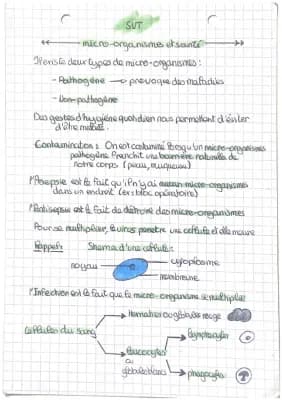 SVT
micro-organismes et santé
Il existe deux types de micro-organismes :
- Pathogène → provoque des maladies
- Non-pathogène
Des gestes d'hygiène quotidien nous permettent d'éviter
d'être malade.
Contamination : On est contaminé lorsqu'un micro-organismes
pathogène franchit une barrière naturelle de
notre corps (peau, muqueuse)
l'Asepsie est le fait qu'il n'y ai aucun micro-organismes
dans un endroit (ex : bloc opératoire)
l'Antisepsie est le fait de détruire des micro-organismes
Pour se multiplier, le virus penetre une cellule et elle meure
Rappel : Shema d'une cellule :
noyau
cytoplasme
membrane
l'Infection est le fait que le micro-organisme se multiplie
Cellules du sang
Hematies ou globules rouge
Leucocytes
ou
globules blancs
lymphocytes
phagocytes